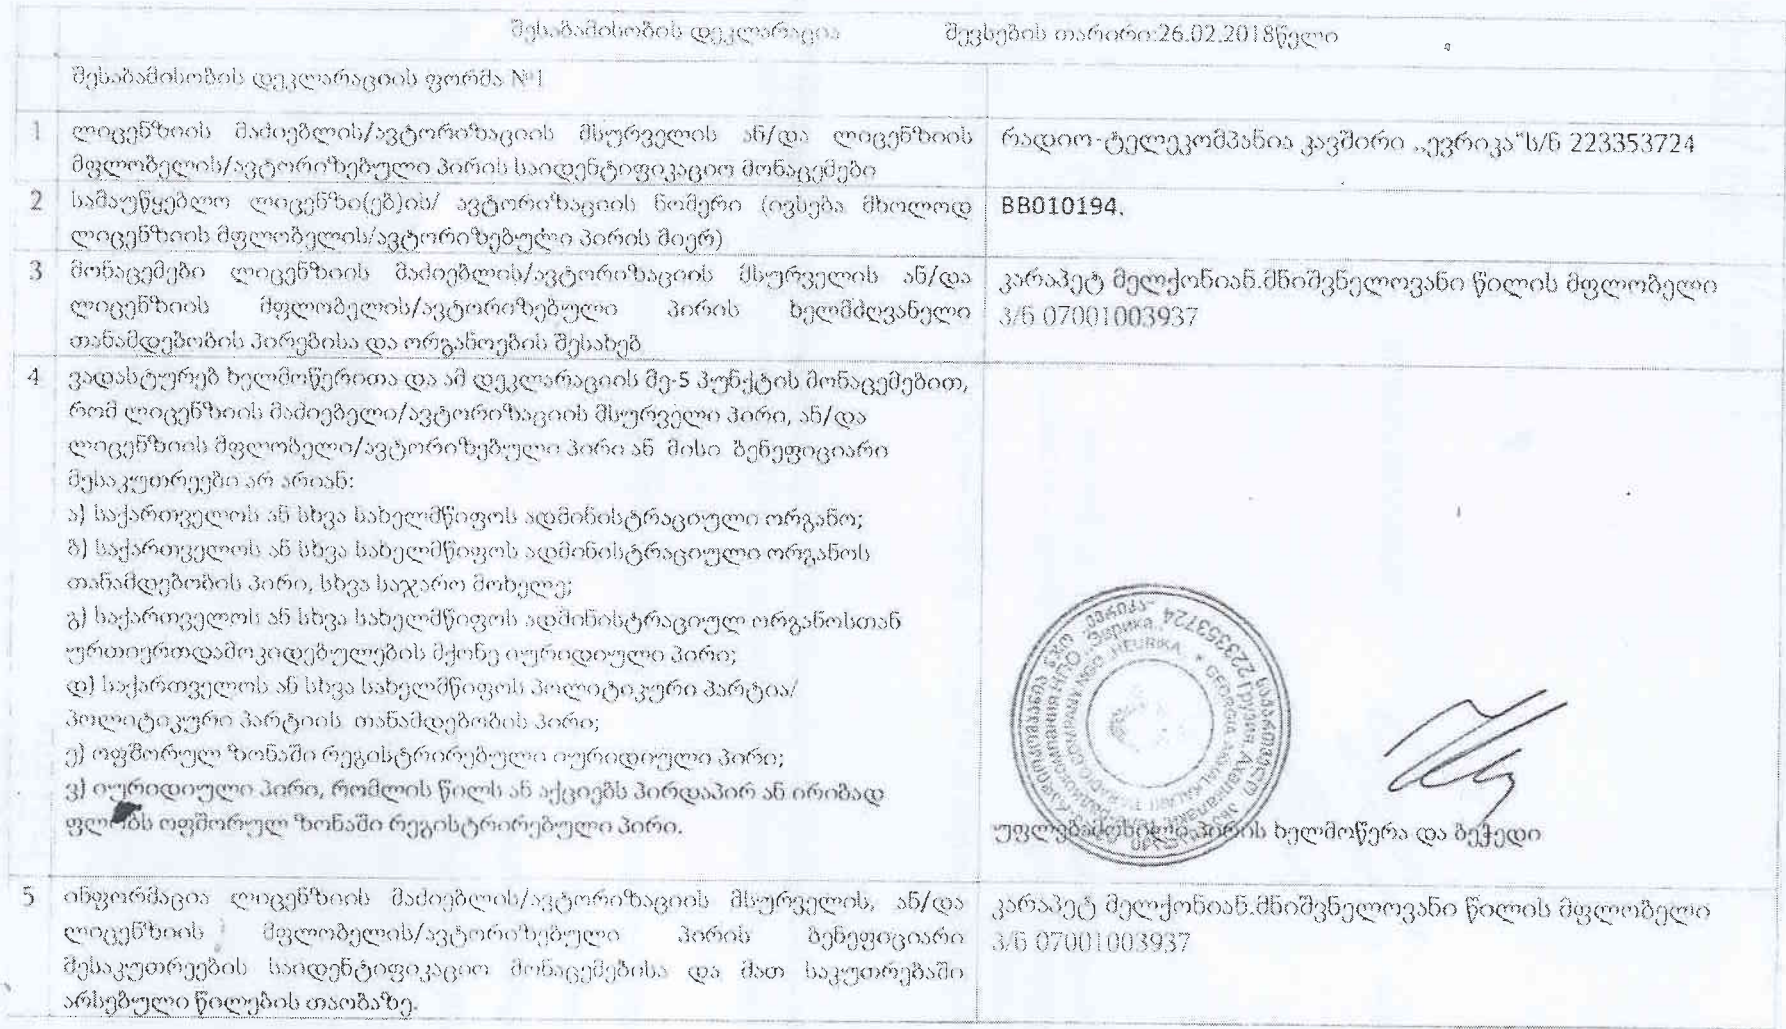 შესაბამისობის დეკლარაცია შევსების თარირი:26.02.2018წელი
შესაბამისობის დეკლარაციის ფორმა №1
1 ლიცენზიის მაძიებლის/ავტორიზაციის მსურველის ან/და ლიცენზიის
მფლობელის/ავტორიზებული პირის საიდენტიფიკაციო მონაცემები
რადიო-ტელეკომპანია კავშირი ,,ევრიკა"ს/ნ 223353724
2 სამაუწყებლო ლიცენზი(ებ)ის/ ავტორიზაციის ნომერი (ივსება მხოლოდ
ლიცენზიის მფლობელის/ავტორიზებული პირის მიერ)
BB010194.
3 მონაცემები ლიცენზიის მაძიებლის/ავტორიზაციის მსურველის ან/და
ლიცენზიის მფლობელის/ავტორიზებული პირის ხელმძღვანელი
თანამდებობის პირებისა და ორგანოების შესახებ
კარაპეტ მელქონიან.მნიშვნელოვანი წილის მფლობელი
პ/ნ 07001003937
4 ვადასტურებ ხელმოწერითა და ამ დეკლარაციის მე-5 პუნქტის მონაცემებით,
რომ ლიცენზიის მაძიებელი/ავტორიზაციის მსურველი პირი, ან/და
ლიცენზიის მფლობელი/ავტორიზებული პირი ან მისი ბენეფიციარი
მესაკუთრეები არ არიან:
ა) საქართველოს ან სხვა სახელმწიფოს ადმინისტრაციული ორგანო;
ბ) საქართველოს ან სხვა სახელმწიფოს ადმინისტრაციული ორგანოს
თანამდებობის პირი, სხვა საჯარო მოხელე;
გ) საქართველოს ან სხვა სახელმწიფოს ადმინისტრაციულ ორგანოსთან
ურთიერთდამოკიდებულების მქონე იურიდიული პირი;
დ) საქართველოს ან სხვა სახელმწიფოს პოლიტიკური პარტია/
პოლიტიკური პარტიის თანამდებობის პირი;
ე) ოფშორულ ზონაში რეგისტრირებული იურიდიული პირი;
ვ) იურიდიული პირი, რომლის წილს ან აქციებს პირდაპირ ან ირიბად
ფლობს ოფშორულ ზონაში რეგისტრირებული პირი.
223353724
უფლებამოსილი პირის ხელმოწერა და ბეჭედი
5 ინფორმაცია ლიცენზიის მაძიებლის/ავტორიზაციის მსურველის, ან/და
ლიცენზიის მფლობელის/ავტორიზებული პირის ბენეფიციარი
მესაკუთრეების საიდენტიფიკაციო მონაცემებისა და მათ საკუთრებაში
არსებული წილების თაობაზე.
კარაპეტ მელქონიან.მნიშვნელოვანი წილის მფლობელი
პ/ნ 07001003937